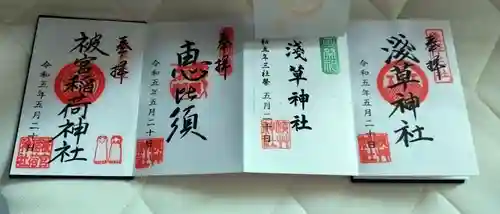 奉拝
浅草神社
令和五年五月二十日
浅草神社
令和五年三社祭 五月二十日
奉拝
恵比須
令和五年五月二十日
奉拝
被官稲荷神社
令和五年五月二十日